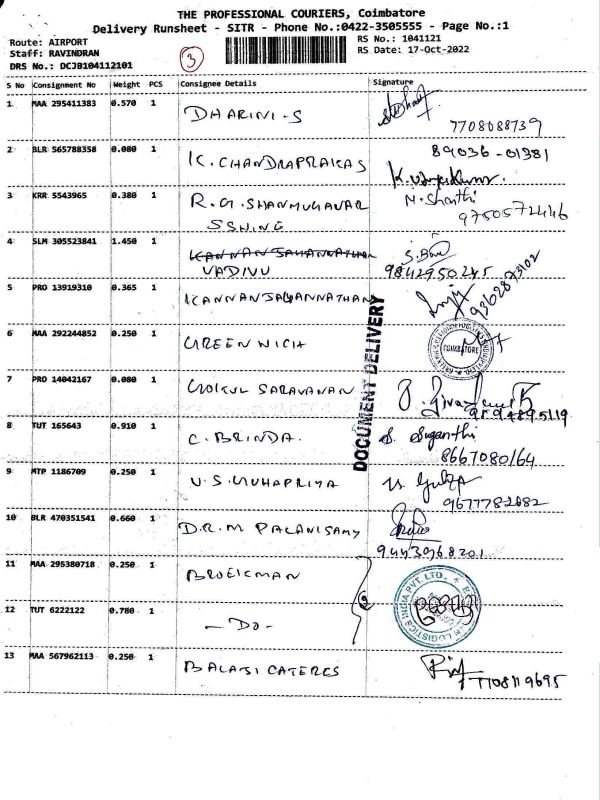 THE PROFESSIONAL COURIERS, Coimbatore
Delivery Runsheet - SITR - Phone No.:0422-3505555 - Page No.:1
Route: AIRPORT
Staff: RAVINDRAN
DRS No.: DCJB104112101
3
RS No.: 1041121
RS Date: 17-Oct-2022
S No Consignment No Weight PCS Consignee Details Signature
1 MAA 295411383 0.570 1 DHARINI-S
7708088739
2 BLR 565788358 0.080 1 K. CHANDRAPRAKAS 89036-01381
3 KRR 5543965 0.380 1 R.G. SHANMUGANAR M. Shanthi
SSHINE 9750572446
4 SLM 305523841 1.450 1 KANNAN JAHANNATHAN
VADIVU 9842950245
5 PRO 13919310 0.365 1 KANNANJAGANNATHAN 9362873102
6 MAA 292244852 0.250 1 GREEN WICH
COIMBATORE
7 PRO 14042167 0.080 1 GOKUL SARAVANAN
8 TUT 165643 0.910 1 C. BRINDA. S. Suganthi
8667080164
9 MTP 1186709 0.250 1 V.S. GUHAPRIYA
9677782882
10 BLR 470351541 0.660 1 D.R.M PALANISAMY
9443968201
DOCUMENT DELIVERY
11 MAA 295380718 0.250 1 BROEKMAN
LOGISTICS INDIA PVT. LTD.
12 TUT 6222122 0.780 1 - DO -
13 MAA 567962113 0.250 1 BALAJI CATERES
7708119695